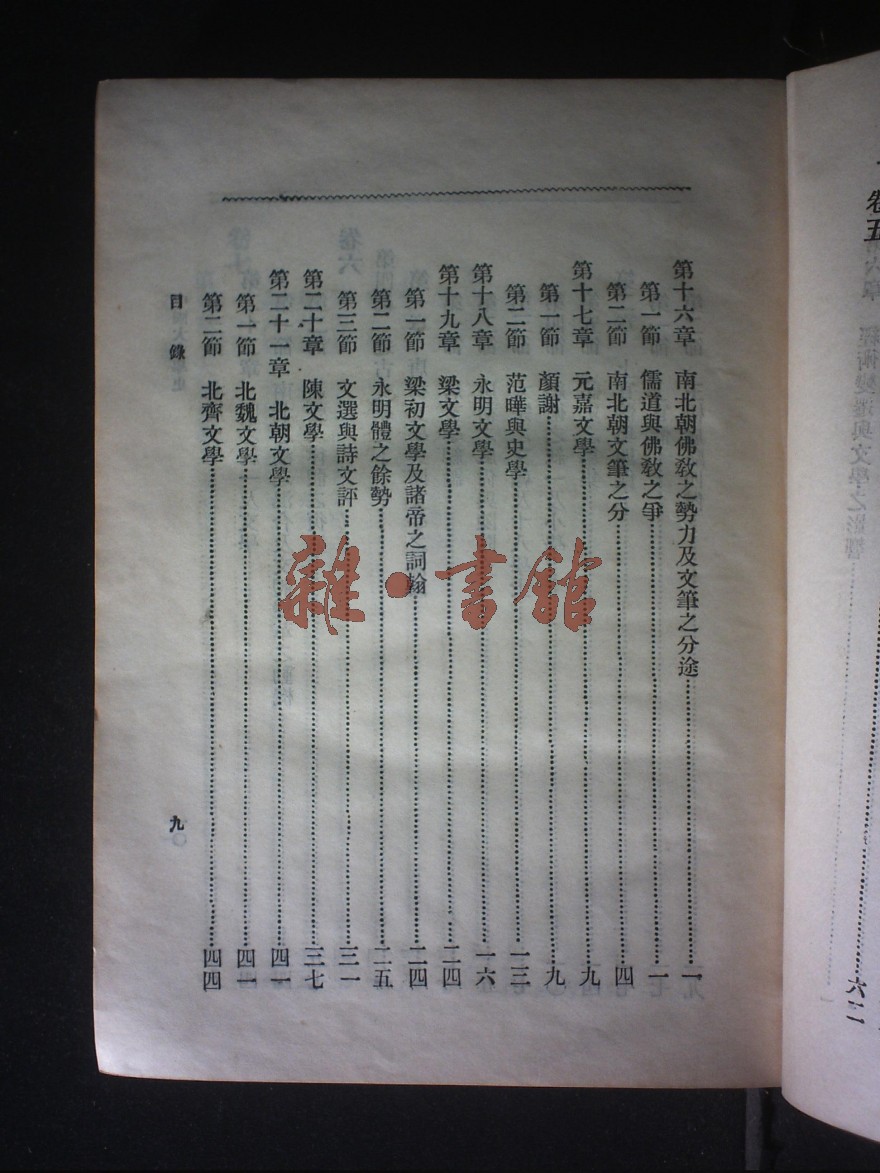 卷五
六二
第十六章　南北朝佛敎之勢力及文筆之分途……一
第一節　儒道與佛敎之爭……一
第二節　南北朝文筆之分……四
第十七章　元嘉文學……九
第一節　顏謝……九
第二節　范曄與史學……一三
第十八章　永明文學……一六
第十九章　梁文學……二四
第一節　梁初文學及諸帝之詞翰……二四
第二節　永明體之餘勢……二五
第三節　文選與詩文評……三一
第二十章　陳文學……三七
第二十一章　北朝文學……四一
第一節　北魏文學……四一
第二節　北齊文學……四四
目錄
九
雜·書館